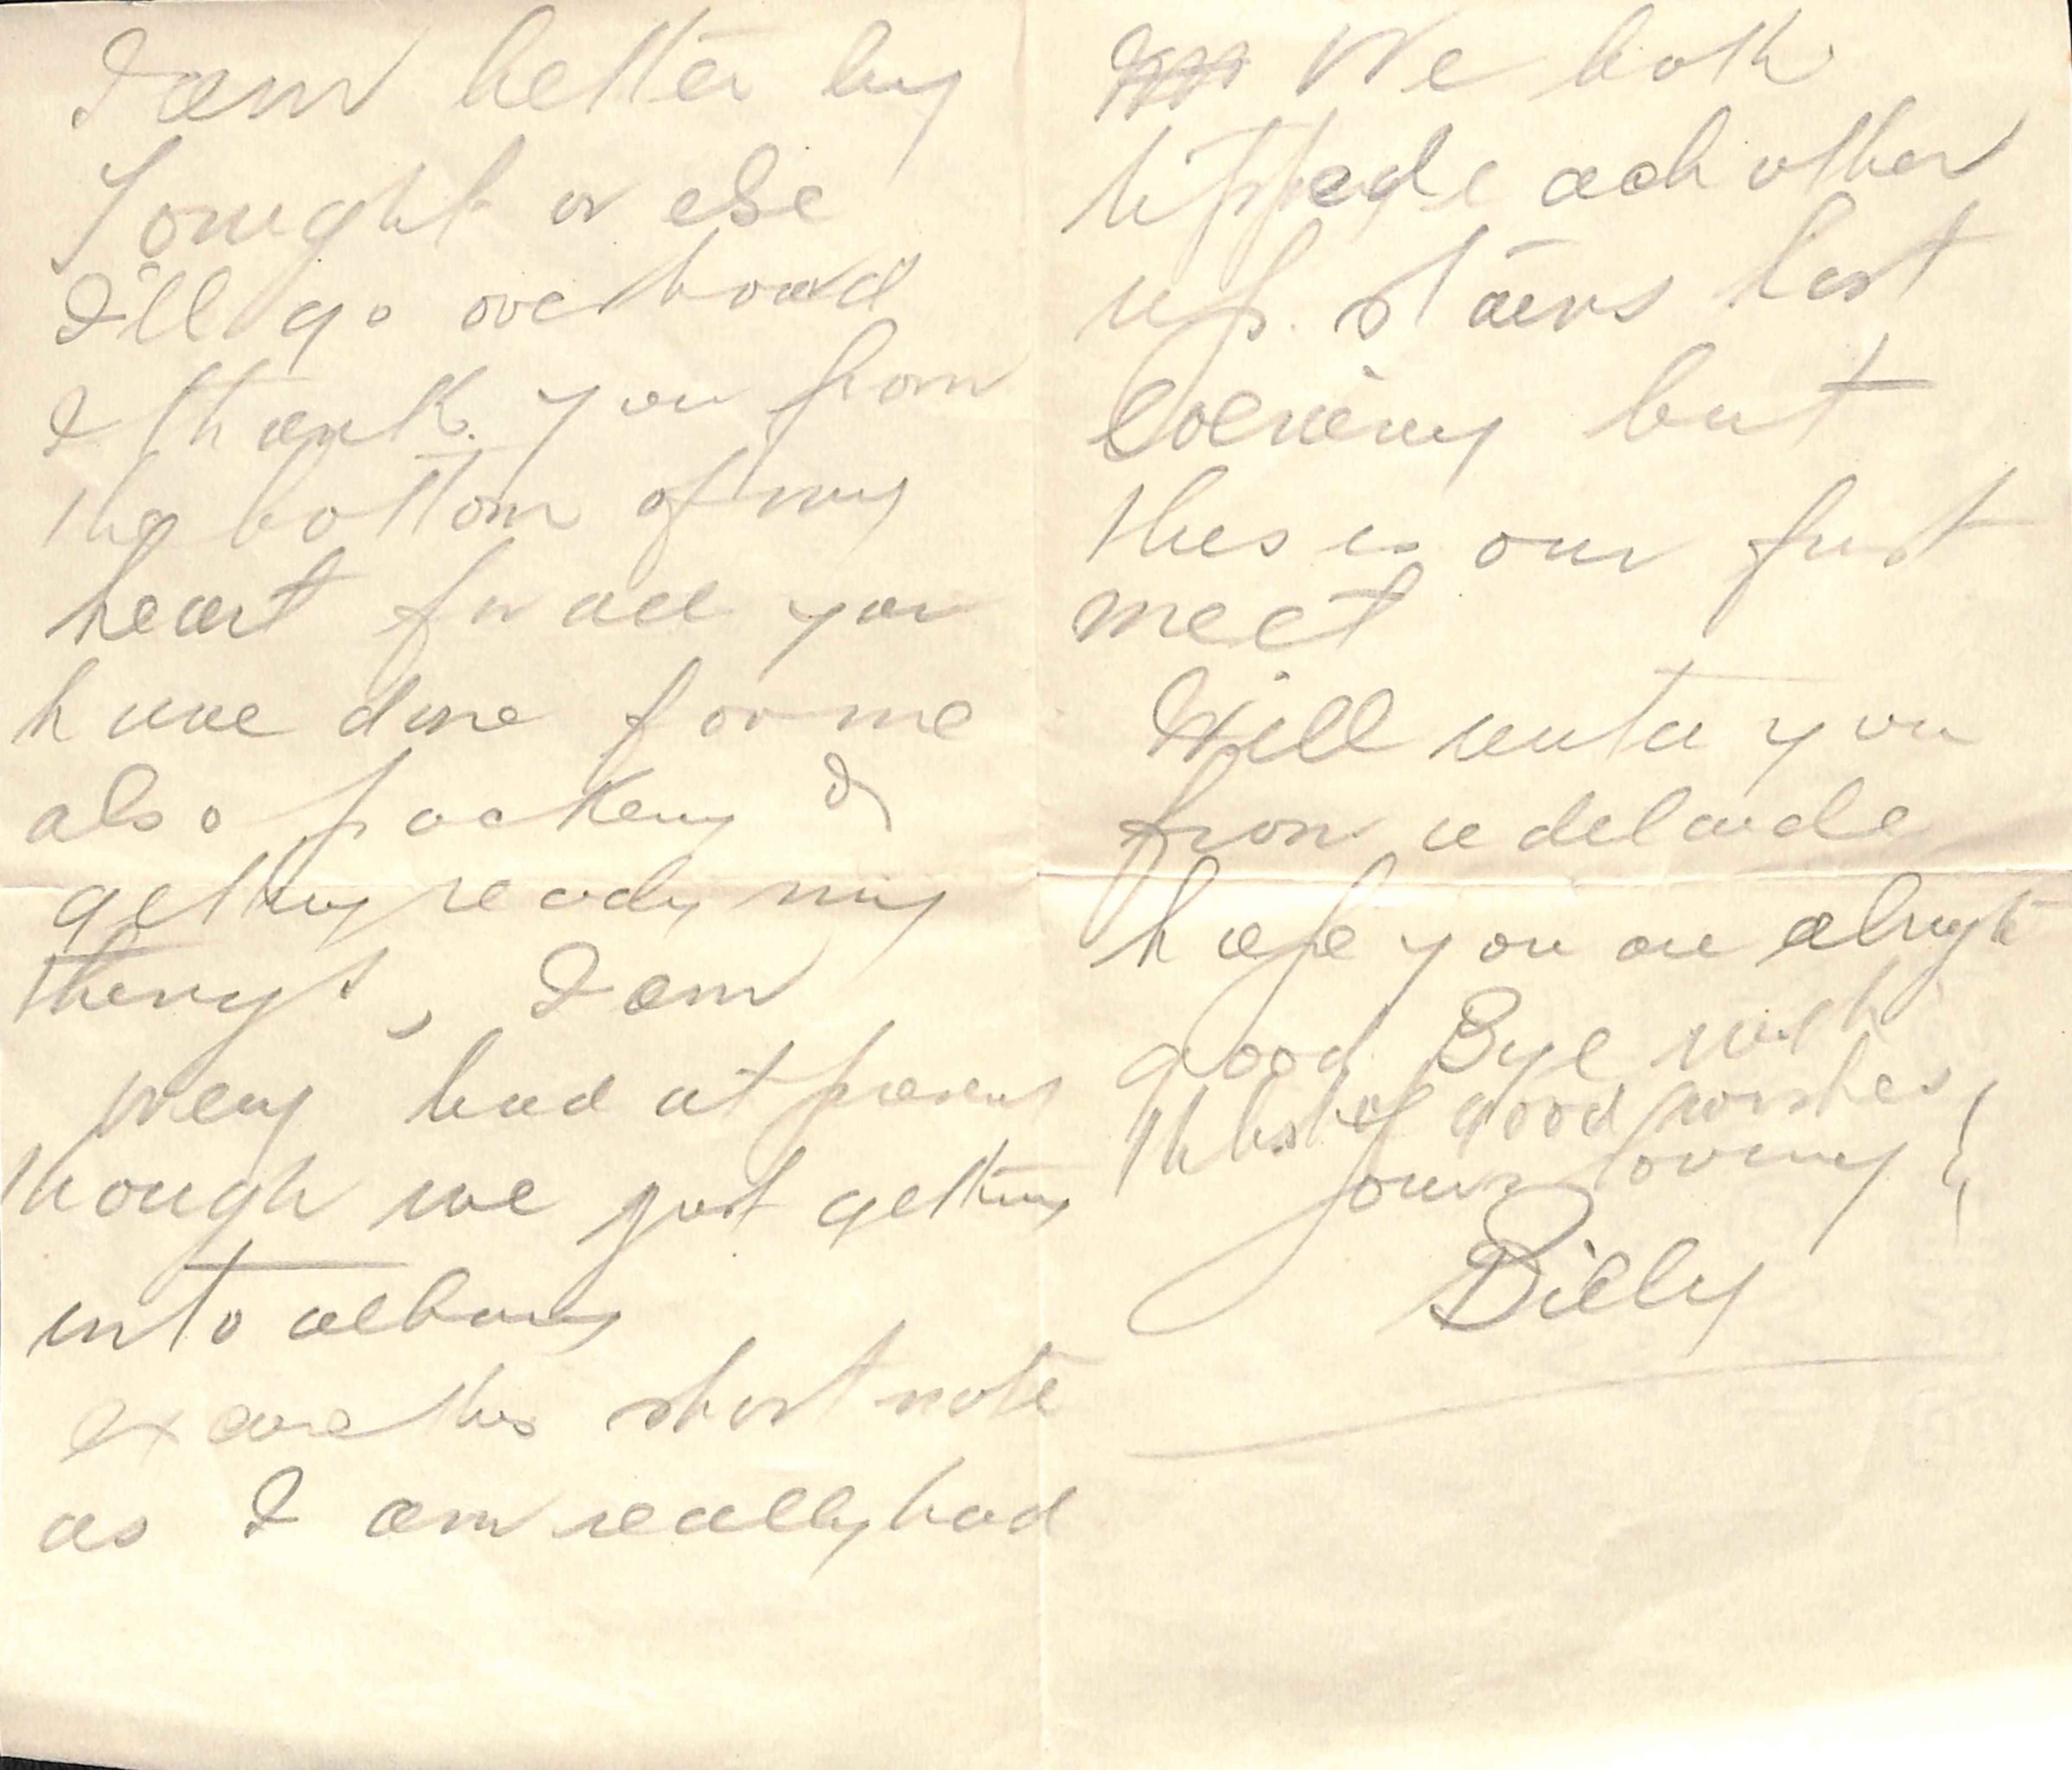 I am better by
Tonight or else
I'll go overboard
I thank you from
the bottom of my
heart for all you
have done for me
also packing &
getting ready my
things, I am
very bad at present
though we just getting
into albany
excuse this short note
as I am really bad
We both
each other
up stairs last
evening but
this is our first
meet
Will write you
from adelaide
hope you are alright
good Bye with
the best of good wishes
your loving
Billy